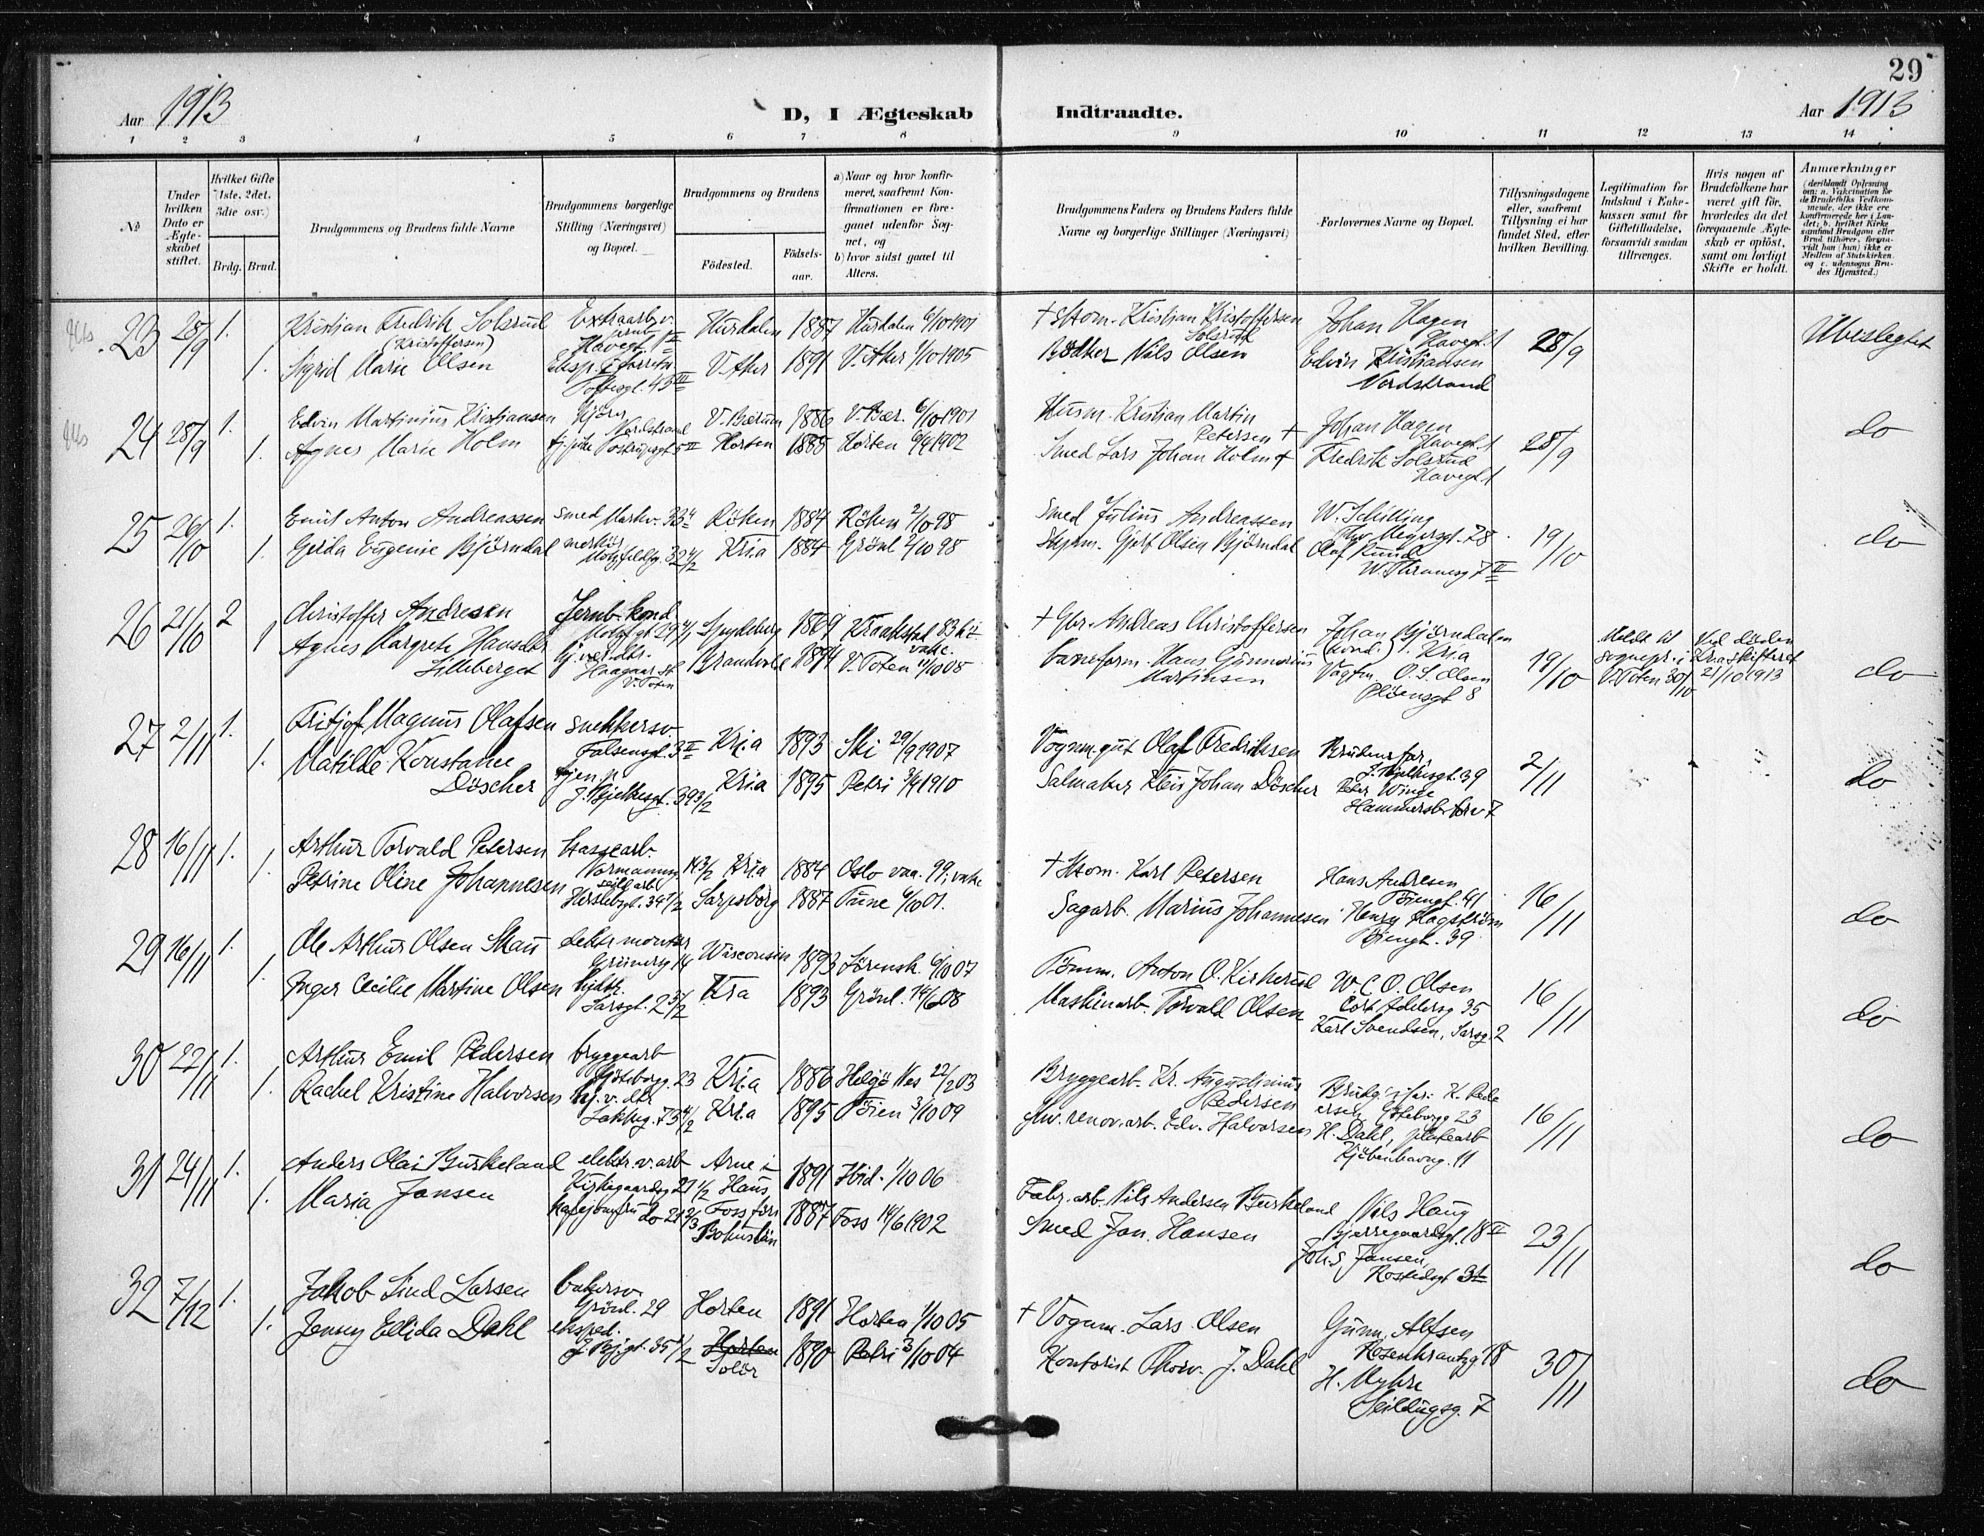 29
Aar 1913
D, I Ægteskab
Indtraadte.
Aar 1913
1 2 3 4 5 6 7 8 9 10 11 12 13 14
№
Under hvilken Dato er Ægteskabet stiftet.
Hvilket Gifte (1ste, 2det, 3die osv.)
Brdg. Brud.
Brudgommens og Brudens fulde Navne
Brudgommens borgerlige Stilling (Næringsvei) og Bopæl.
Brudgommens og Brudens
Fødested.
Fødselsaar.
a) Naar og hvor konfirmeret, saafremt Konfirmationen er foreganet udenfor Sognet, og
b) hvor sidst gaaet til Alters.
Brudgommens Faders og Brudens Faders fulde Navne og borgerlige Stillinger (Næringsvei)
Forlovernes Navne og Bopæl.
Tillysningsdagene eller, saafremt Tillysning ei har fundet Sted, efter hvilken Bevilling.
Legitimation for Indskud i Enkekassen samt for Giftetilladelse, forsaavidt saadan tiltrænges.
Hvis nogen af Brudefolkene har været gift før, hvorledes da det foregaaende Ægteskab er opløst, samt om lovligt Skifte er holdt.
Anmærkninger
(deriblandt Oplysning om: a. Vakcination for de Brudefolks Vedkommende, der ikke ere konfirmerede her i Landet; b. hvilket Kirkesamfund Brudgom eller Brud tilhører, forsaavidt han (hun) ikke er Medlem af Statskirken, og c. udensogns Brudes Hjemsted.)
23 28/9 1. Kristian Fredrik Solsrud Extraarb. v. Hurdalen 1887 Hurdalen 6/10 1901 † Kristian Kristoffersen Johan Hagen 28/9 Ubeslegtet
(Kristoffersen) Havegt. Solsrud Havegt. 1
1. Sigrid Marie Olsen Toftesgt. 45 III V. Aker 1891 V. Aker 1/10 1905 Bødker Nils Olsen Edvin Kristiansen
Nordstrand
24 28/9 1. Edvin Martinius Kristiansen Nordstrand V. Bærum 1886 V. Bær. 6/10 1901 Husm. Kristian Martin Johan Hagen 28/9 do
Petersen † Havegt. 1
1. Agnes Marie Holm Horten 1885 Horten 1902 Smed Lars Johan Holm † Fredrik Solsrud
Havegt. 1
25 26/10 1. Emil Anton Andreassen smed Markv. Røken 1884 Røken 2/10 98 Smed Julius Andreassen W. Schilling 19/10 do
Thv. Meyersgt. 28
1. Gerda Eugenie Bjørndal Kria 1884 Grönl 2/10 98 Olsen Bjørndal Olaf
W. Thranesg 7 II
26 21/10 2 Christoffer Andresen Jernb. kond Spydeberg 1869 Kraakstad 83 † Gbr. Andreas Christoffersen Johan Bjørndalen 19/10 do
1 Agnes Margrete Hansdtr Brandvold 1874 V. Toten 08 Hans Gunnerius (kond.) Kria
Lilleberget V. Toten Martinsen O. S. Olsen
Pløensgt 8
Meldt til sognepr. i V. Toten 30/10
Ved døden 21/10 1913
27 2/11 1. Fritjof Magnus Olafsen snekkersv. Kria 1893 Ski 29/9 1907 Vognm.gut Olaf Fredriksen Brudens far, 2/11 do
Falsensgt. 3 II J. Bjelkesgt. 39
1. Matilde Konstance tjen.p. Kria 1895 Petri 3/4 1910 Salmaker Johan Döscher Peter Winge
Döscher J. Bjelkesgt. 39 3/2 Hammersb. 7
28 16/11 1. Arthur Torvald Petersen Kria 1884 Oslo vaa. 99, vake † Karl Petersen Hans Andresen 16/11 do
Tøiengt. 41
1. Petrine Oline Johannesen Herslebsgt. Sarpsborg 1887 Tune 6/10 01. Sagarb. Marius Johannesen Henry Hagstrøm
Tøiengt. 39
29 16/11 1. Ole Arthur Olsen Skau elektr. montør Wisconsin 1893 Sörensk. 6/10 07 Tömm. Anton O. Kirkerud W. C. O. Olsen 16/11 do
Grünersg 14 Cort Adelersg 35
1. Inger Cecilie Martine Olsen Sarsgt. 2 3/2 Kria 1893 Grönl. 14/6 08 Maskinarb. Torvald Olsen Karl Svendsen, Sarsg. 2
30 22/11 1. Arthur Emil Pedersen bryggearb Kria 1886 Helgö Nes 22/2 03 Bryggearb. Kr. Augustinius Brudg's far: K. Pede 16/11 do
Göteborgg. 23 Pedersen ersen, Göteborgg 23
1. Rachel Kristine Halvorsen hj. v. dtr. Kria 1895 Töien 3/10 09 renov.arb. Edv. Halvorsen H. Dahl,
Kjöbenhavng. 11
31 24/11 1. Anders Olai Burkeland elektr. v. arb Arne i 1891 Ibid. 1/10 06 Fabr. arb. Nils Andersen Burkeland Nils Haug 23/11 do
Kirkegaardsg 21 1/2 Haus Bjerregaardsgt. 18 II
1. Maria Jansen do 21 2/3 Foss 1887 Foss 14/6 1902 Smed Jan Hansen Johs. Jansen,
Bohuslän
32 7/12 1. Jakob Lind Larsen bakersv. Horten 1891 Horten 1/10 05 † Vognm. Lars Olsen Gunn. Alfsen 30/11 do
Grönl. 29 Rosenkrantzg 18
1. Jenny Ellida Dahl eksped. Horten 1890 Petri 3/10 04 Kontorist Thorv. J. Dahl H. Myhre
J. Bjgt. 35 Solör Seildugsg. 7